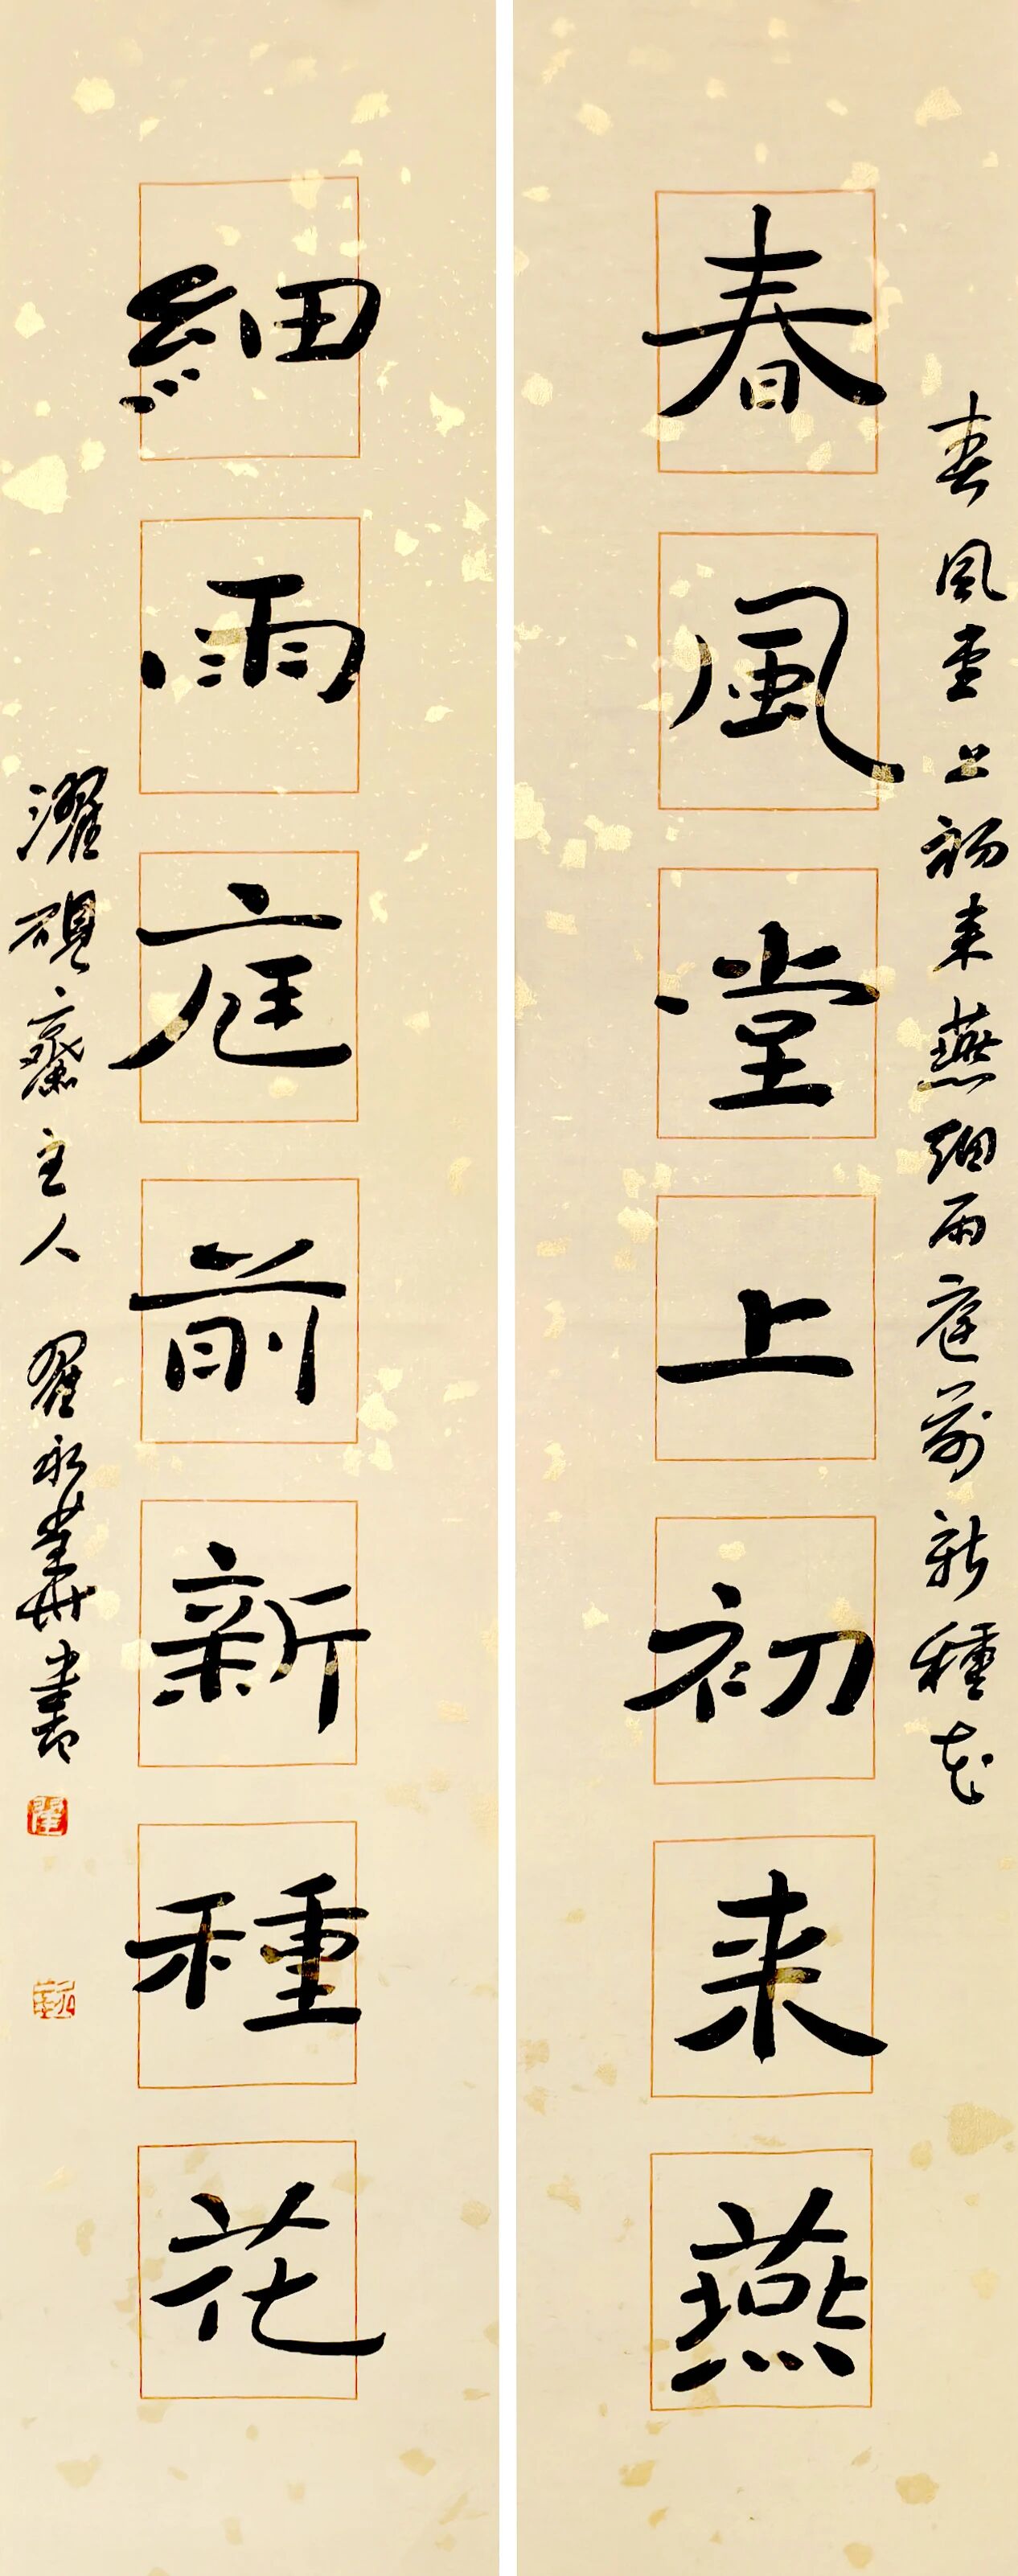 春風堂上初来燕細雨庭前新種花
春風堂上初来燕
細雨庭前新種花
濯硯齋主人 翟永華書